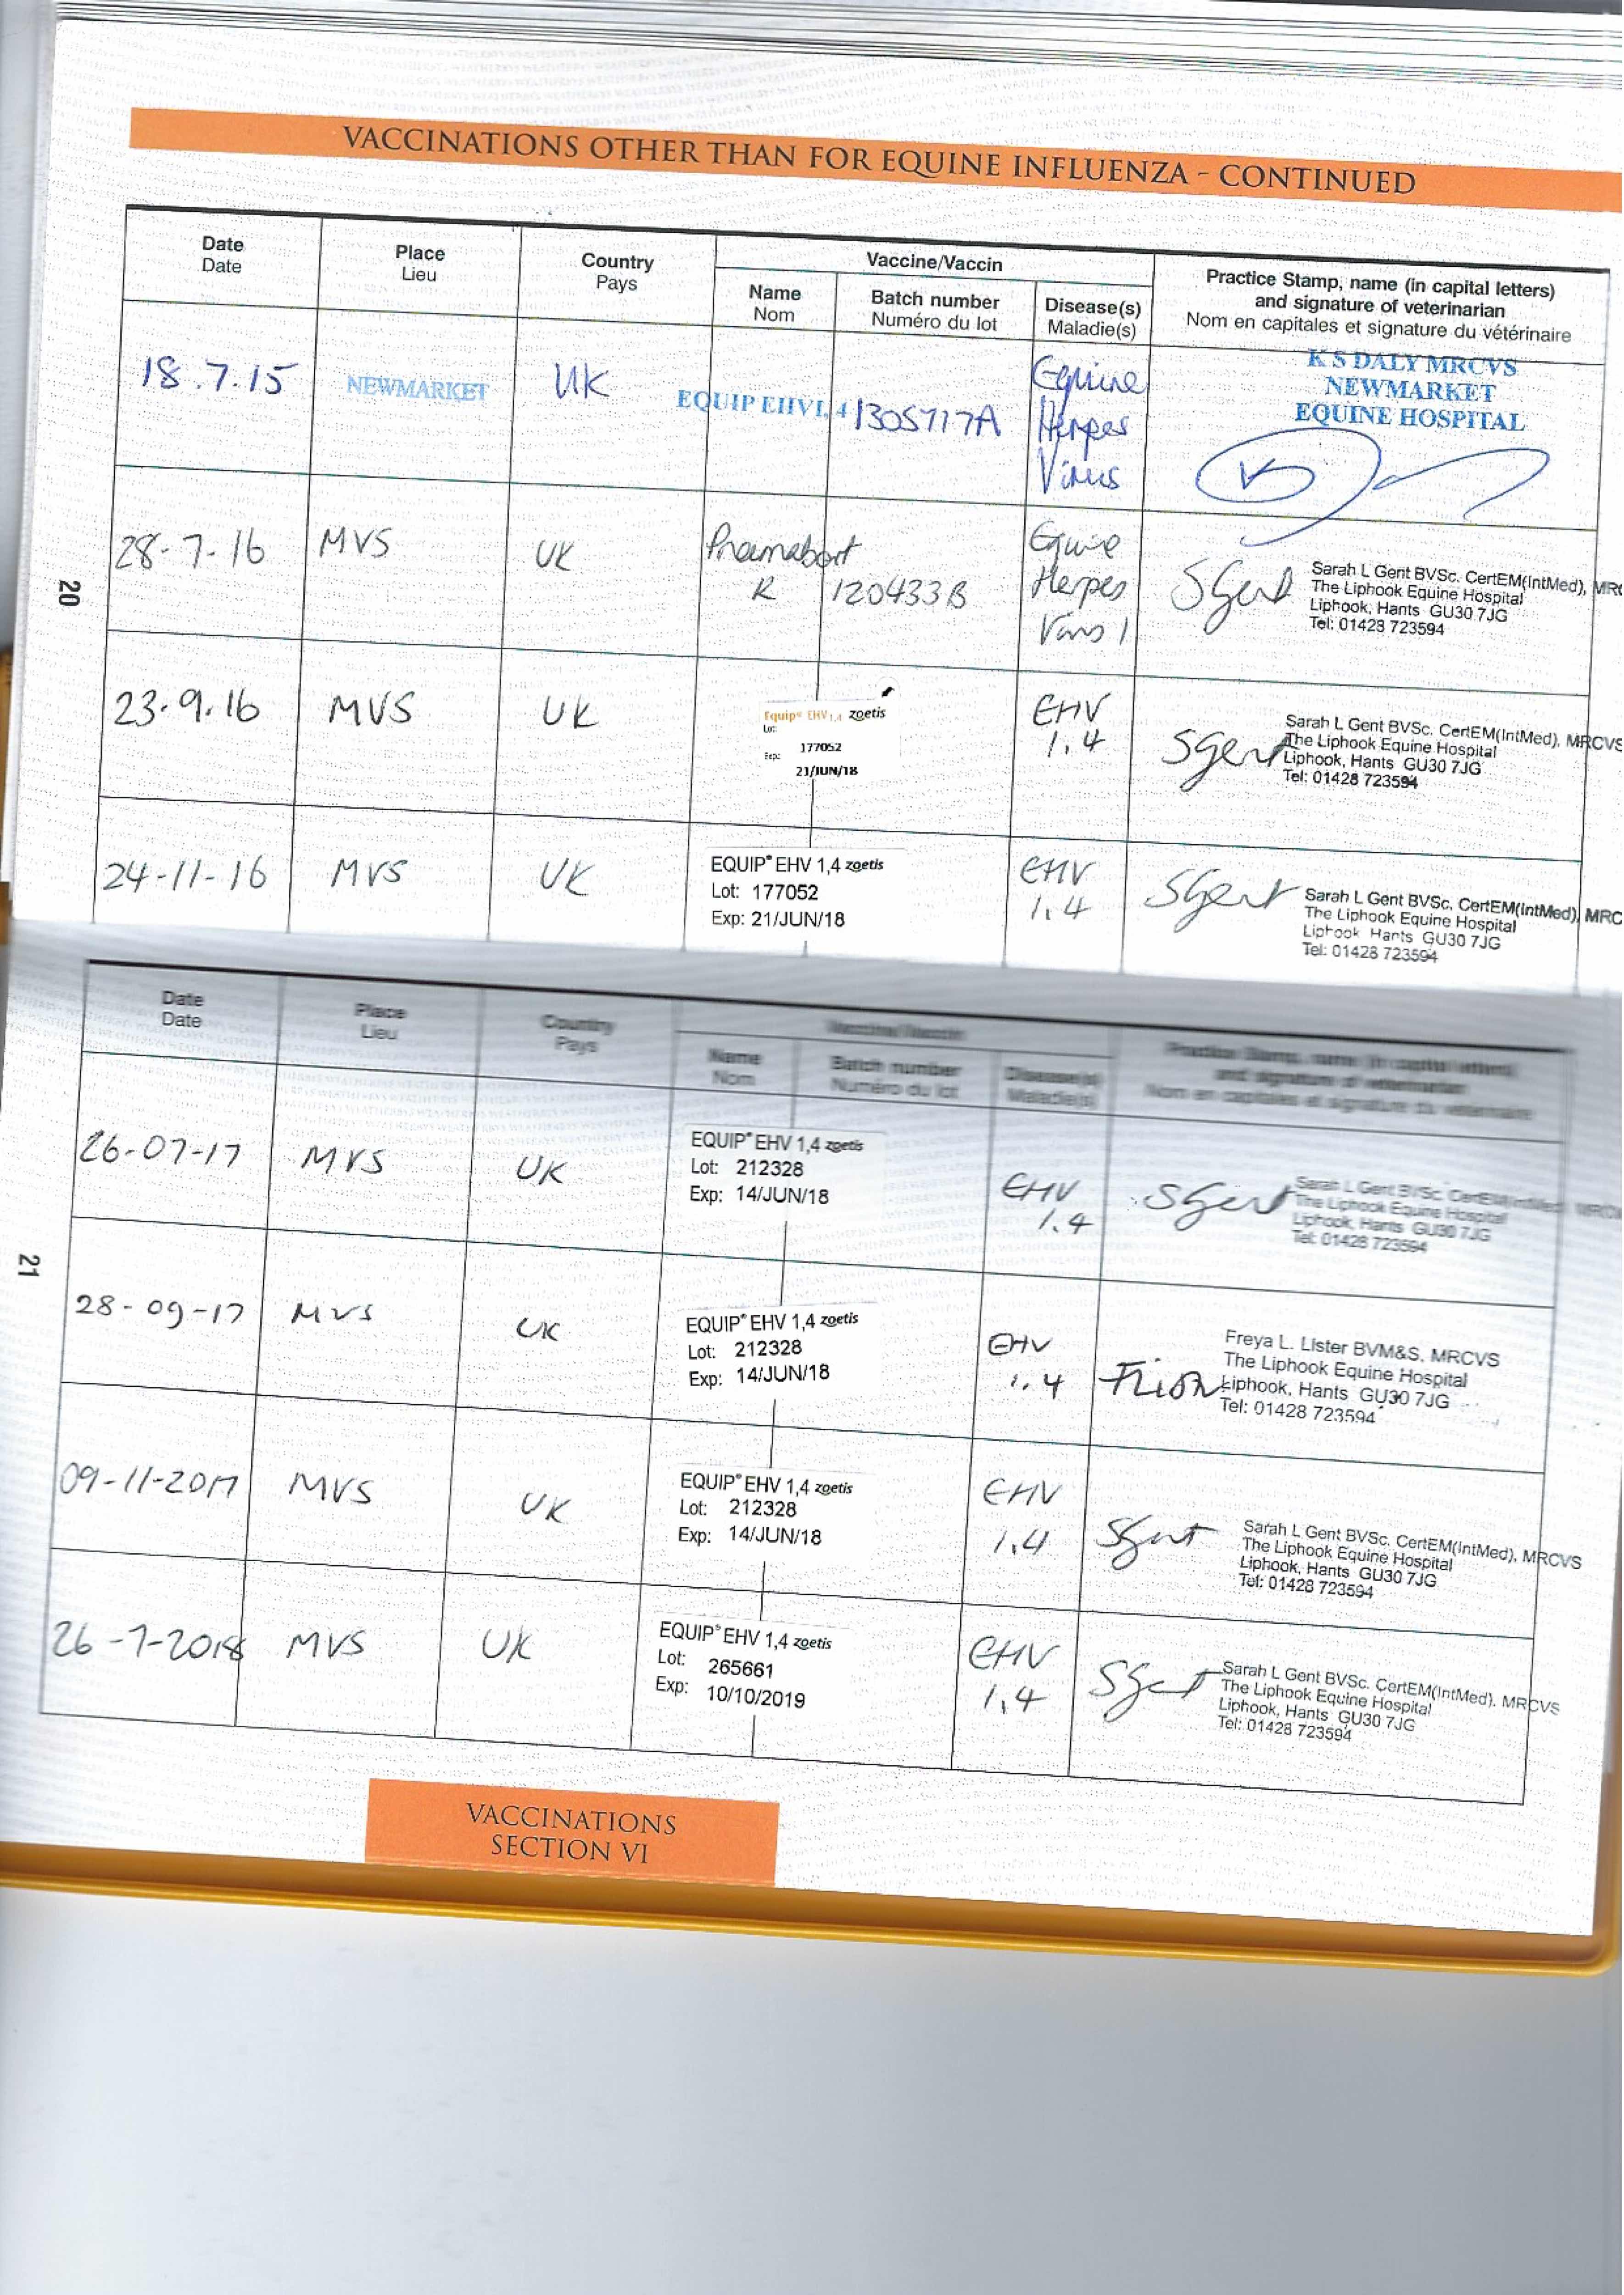 VACCINATIONS OTHER THAN FOR EQUINE INFLUENZA - CONTINUED
Date
Date
Place
Lieu
Country
Pays
Vaccine/Vaccin
Name
Nom
Batch number
Numéro du lot
Disease(s)
Maladie(s)
Practice Stamp, name (in capital letters)
and signature of veterinarian
Nom en capitales et signature du vétérinaire
18.7.15
NEWMARKET
UK
EQUIP EHV1,4
1305717A
Equine
Herpes
Virus
K S DALY MRCVS
NEWMARKET
EQUINE HOSPITAL
28-7-16
MVS
UK
Pneumabort
K
120433B
Equine
Herpes
Virus 1
SGent
Sarah L Gent BVSc. CertEM(IntMed), MRC
The Liphook Equine Hospital
Liphook, Hants GU30 7JG
Tel: 01428 723594
20
23.9.16
MVS
UK
Equip® EHV 1,4 zoetis
Lot:
177052
Exp:
21/JUN/18
EHV
1.4
SGent
Sarah L Gent BVSc. CertEM(IntMed), MRCVS
The Liphook Equine Hospital
Liphook, Hants GU30 7JG
Tel: 01428 723594
24-11-16
MVS
UK
EQUIP® EHV 1,4 zoetis
Lot: 177052
Exp: 21/JUN/18
EHV
1.4
SGent
Sarah L Gent BVSc. CertEM(IntMed), MRC
The Liphook Equine Hospital
Liphook Hants GU30 7JG
Tel: 01428 723594
Date
Date
Place
Lieu
Country
Pays
Vaccine/Vaccin
Name
Nom
Batch number
Numéro du lot
Disease(s)
Maladie(s)
Practice Stamp, name (in capital letters)
and signature of veterinarian
Nom en capitales et signature du vétérinaire
26-07-17
MVS
UK
EQUIP® EHV 1,4 zoetis
Lot: 212328
Exp: 14/JUN/18
EHV
1.4
SGent
Sarah L Gent BVSc. CertEM(IntMed), MRCV
The Liphook Equine Hospital
Liphook, Hants GU30 7JG
Tel: 01428 723594
21
28-09-17
MVS
UK
EQUIP® EHV 1,4 zoetis
Lot: 212328
Exp: 14/JUN/18
EHV
1.4
Freya L. Lister BVM&S, MRCVS
The Liphook Equine Hospital
Liphook, Hants GU30 7JG
Tel: 01428 723594
09-11-2017
MVS
UK
EQUIP® EHV 1,4 zoetis
Lot: 212328
Exp: 14/JUN/18
EHV
1.4
SGent
Sarah L Gent BVSc. CertEM(IntMed), MRCVS
The Liphook Equine Hospital
Liphook, Hants GU30 7JG
Tel: 01428 723594
26-7-2018
MVS
UK
EQUIP® EHV 1,4 zoetis
Lot: 265661
Exp: 10/10/2019
EHV
1.4
SGent
Sarah L Gent BVSc. CertEM(IntMed). MRCVS
The Liphook Equine Hospital
Liphook, Hants GU30 7JG
Tel: 01428 723594
VACCINATIONS
SECTION VI